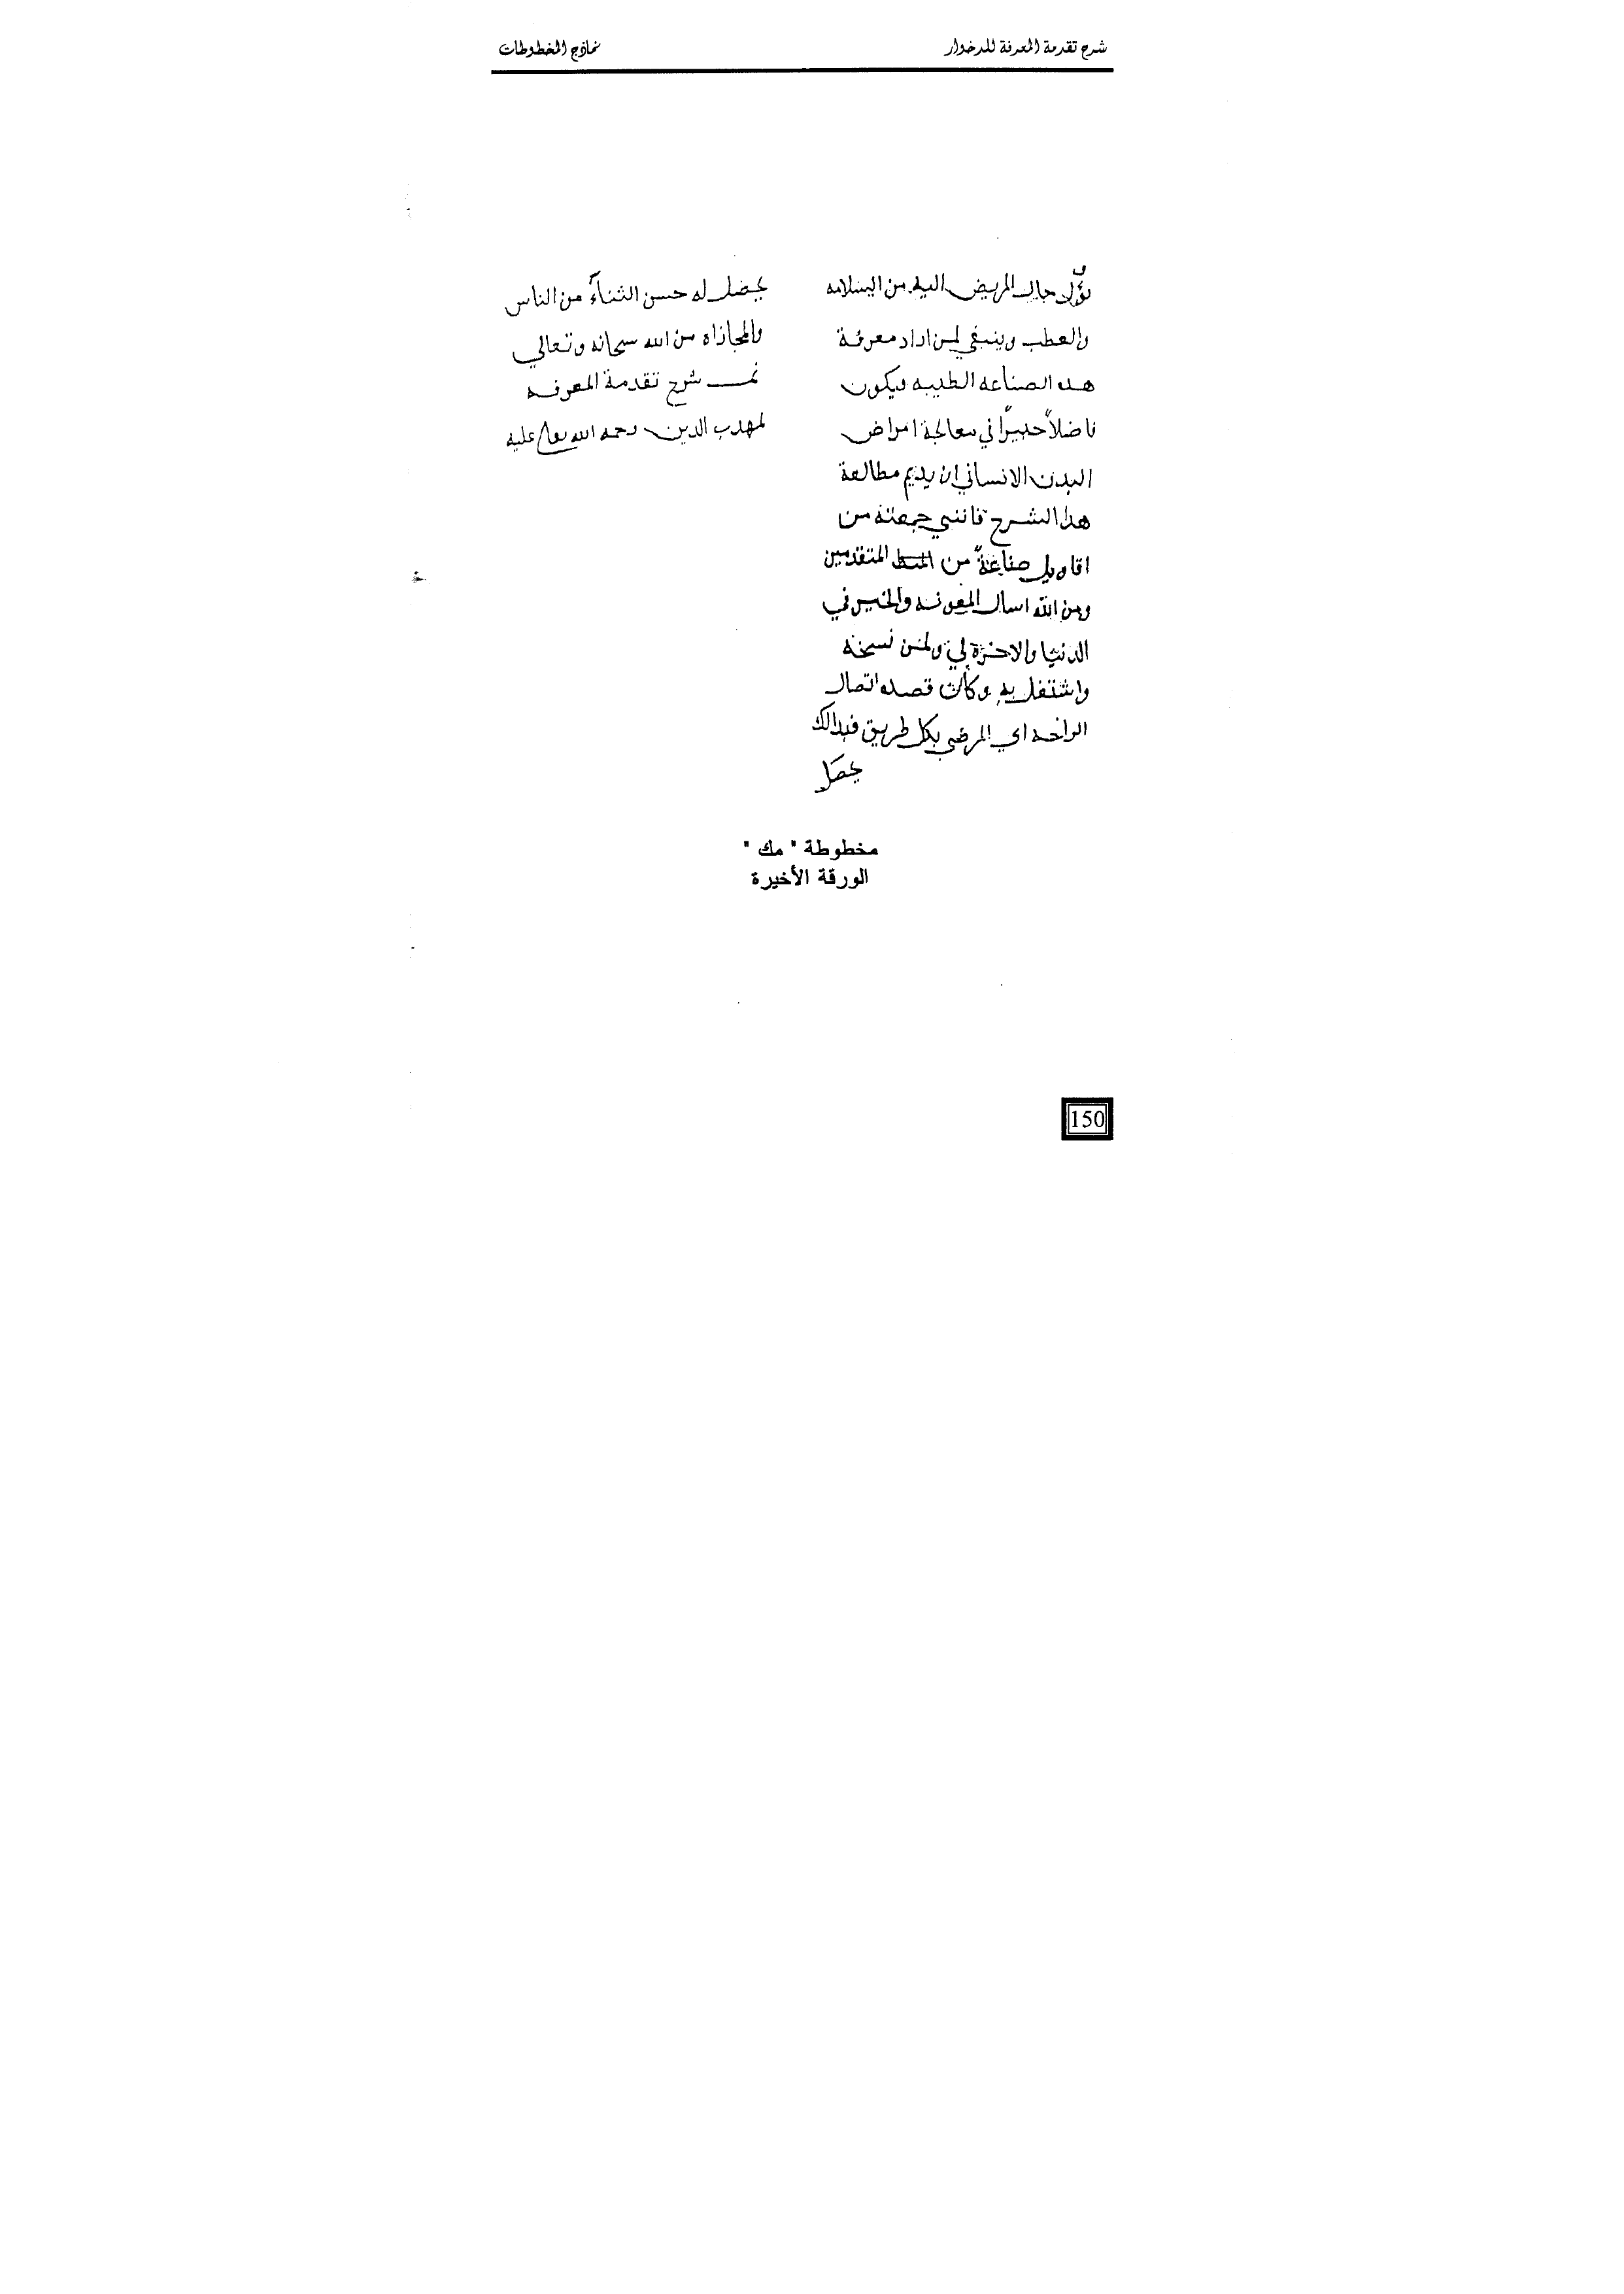 شرح تقدمة المعرفة للدخوار
نماذج المخطوطات
يؤل حال المريض اليه من السلامه
والعطب وينبغي لمن اراد معرفة
هده الصناعه الطبيه ويكون
فاضلاً خبيراً في معالجة امراض
البدن الانساني ان يديم مطالعة
هدا الشرح فانني جمعته من
اقاويل صناعة من المتقدمين
ومن الله اسال المعونه والخير في
الدنيا والاخرة لي ولمن نسخه
واشتغل به وكان قصده اتصال
الراحه الي المرضي بكل طريق فبدالك
يحصل
يحصل له حسن الثناء من الناس
والمجازاه من الله سبحانه وتعالي
تمـ شرح تقدمة المعرفه
لمهدب الدين رحمه الله عليه
مخطوطة " مك "
الورقة الأخيرة
150